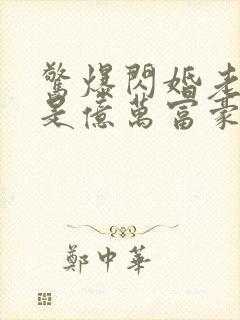 驚爆閃婚老
是億萬富豪
鄭中華